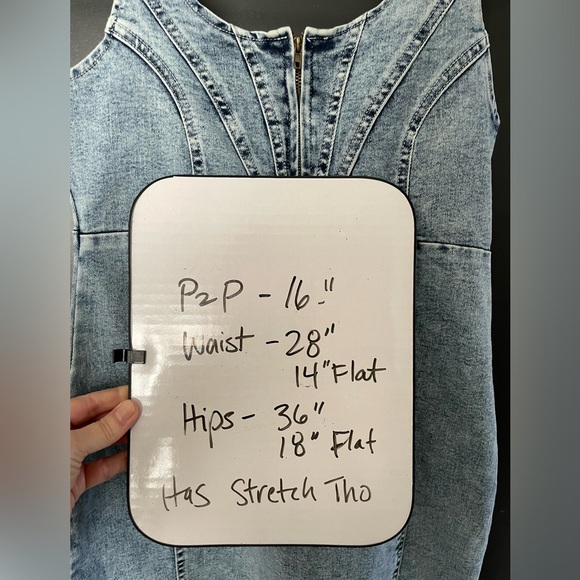 P2P - 16"
Waist - 28"
14" Flat
Hips - 36"
18" Flat
Has Stretch Tho